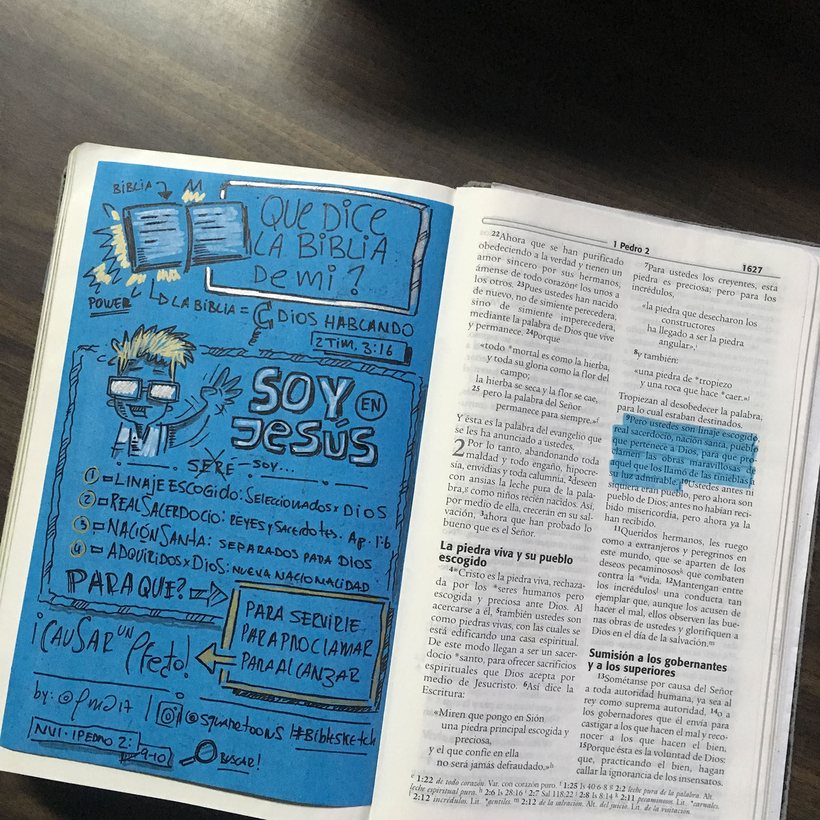 BIBLIA
QUE DICE
LA BIBLIA
De mi?
POWER
LA BIBLIA = DIOS HABLANDO
2 TIM. 3:16
SOY EN
JESÚS
SERE - SOY...
1 LINAJE ESCOGIDO: Seleccionados x DIOS
2 REAL SACERDOCIO: REYES y SACERDOTES. Ap. 1:6
3 NACIÓN SANTA: SEPARADOS PARA DIOS
4 ADQUIRIDOS x DIOS: NUEVA NACIONALIDAD
PARA QUE?
PARA SERVIRLE
PARA PROCLAMAR
PARA ALCANZAR
¡CAUSAR UN efecto!
by: | @squaretoons | #Biblesketch
NVI · 1 PEDRO 2:
9-10
BUSCAR!
1 Pedro 2
1627
22Ahora que se han purificado
obedeciendo a la verdad y tienen un
amor sincero por sus hermanos,
ámense de todo corazónᵉ los unos a
los otros. 23Pues ustedes han nacido
de nuevo, no de simiente perecedera,
sino de simiente imperecedera,
mediante la palabra de Dios que vive
y permanece. 24Porque
«todo *mortal es como la hierba,
y toda su gloria como la flor del
campo;
la hierba se seca y la flor se cae,
25 pero la palabra del Señor
permanece para siempre.»
Y ésta es la palabra del evangelio que
se les ha anunciado a ustedes.
2 Por lo tanto, abandonando toda
maldad y todo engaño, hipocre-
sía, envidias y toda calumnia, 2deseen
con ansias la leche pura de la pala-
bra,g como niños recién nacidos. Así,
por medio de ella, crecerán en su sal-
vación, 3ahora que han probado lo
bueno que es el Señor.
La piedra viva y su pueblo
escogido
4Cristo es la piedra viva, rechaza-
da por los *seres humanos pero
escogida y preciosa ante Dios. Al
acercarse a él, 5también ustedes son
como piedras vivas, con las cuales se
está edificando una casa espiritual.
De este modo llegan a ser un sacer-
docio *santo, para ofrecer sacrificios
espirituales que Dios acepta por
medio de Jesucristo. 6Así dice la
Escritura:
«Miren que pongo en Sión
una piedra principal escogida y
preciosa,
y el que confíe en ella
no será jamás defraudado.»h
7Para ustedes los creyentes, esta
piedra es preciosa; pero para los
incrédulos,
«la piedra que desecharon los
constructores
ha llegado a ser la piedra
angular»,i
8y también:
«una piedra de *tropiezo
y una roca que hace *caer.»j
Tropiezan al desobedecer la palabra,
para lo cual estaban destinados.
9Pero ustedes son linaje escogido,
real sacerdocio, nación santa, pueblo
que pertenece a Dios, para que pro-
clamen las obras maravillosas de
aquel que los llamó de las tinieblas
a su luz admirable. 10Ustedes antes ni
siquiera eran pueblo, pero ahora son
pueblo de Dios; antes no habían reci-
bido misericordia, pero ahora ya la
han recibido.
11Queridos hermanos, les ruego
como a extranjeros y peregrinos en
este mundo, que se aparten de los
deseos pecaminososk que combaten
contra la *vida. 12Mantengan entre
los incrédulosl una conducta tan
ejemplar que, aunque los acusen de
hacer el mal, ellos observen las bue-
nas obras de ustedes y glorifiquen a
Dios en el día de la salvación.m
Sumisión a los gobernantes
y a los superiores
13Sométanse por causa del Señor
a toda autoridad humana, ya sea al
rey como suprema autoridad, 14o a
los gobernadores que él envía para
castigar a los que hacen el mal y reco-
nocer a los que hacen el bien.
15Porque ésta es la voluntad de Dios:
que, practicando el bien, hagan
callar la ignorancia de los insensatos.
e 1:22 de todo corazón. Var. con corazón puro. f 1:25 Is 40:6-8 g 2:2 leche pura de la palabra. Alt.
leche espiritual pura. h 2:6 Is 28:16 i 2:7 Sal 118:22 j 2:8 Is 8:14 k 2:11 pecaminosos. Lit. *carnales.
l 2:12 incrédulos. Lit. *gentiles. m 2:12 de la salvación. Alt. del juicio. Lit. de la visitación.